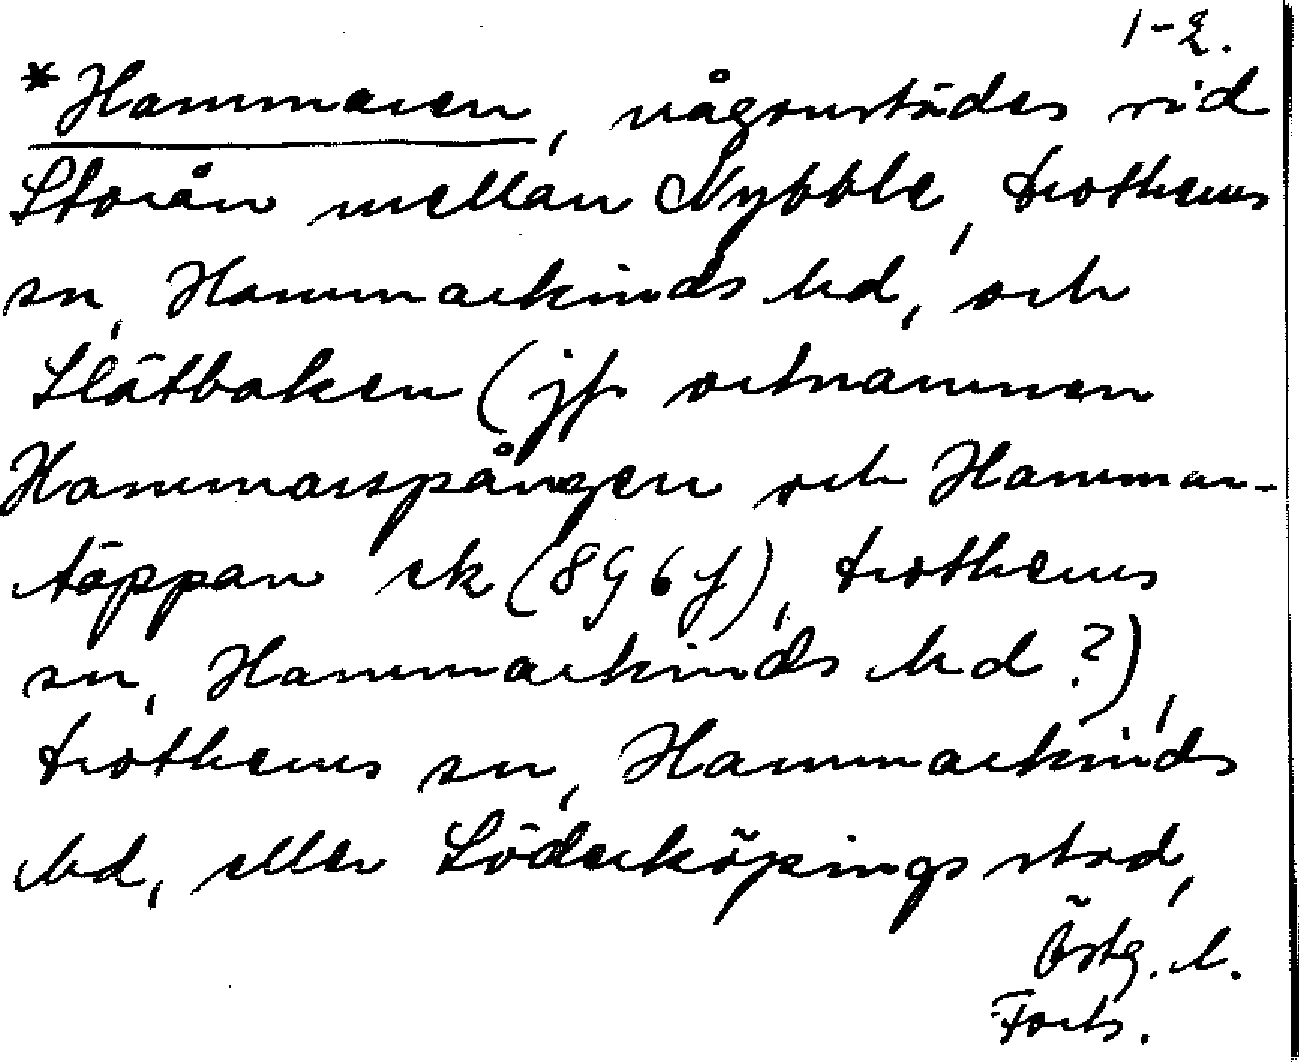 1-2.
*Hammaren, någonstädes vid
Storån mellan Nybble, Drothems
sn, Hammarkinds hd, och
Slätbaken (jfr ortnamnen
Hammarspången och Hammar-
täppan ek (8G6f), Drothems
sn, Hammarkinds hd?),
Drothems sn, Hammarkinds
hd, eller Söderköpings stad,
Östg. l.
Forts.